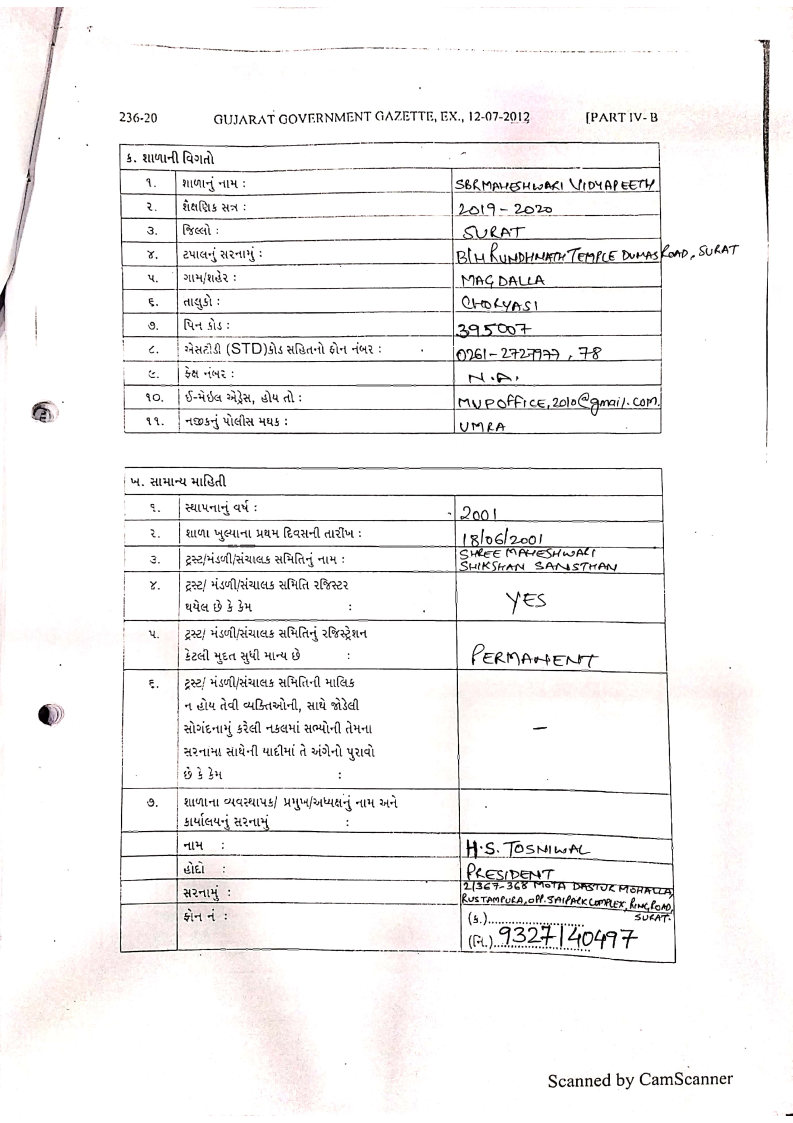 236-20 GUJARAT GOVERNMENT GAZETTE, EX., 12-07-2012 [PART IV- B
ક. શાળાની વિગતો
૧. શાળાનું નામ : SBRMAHESHWARI VIDYAPEETH
૨. શૈક્ષણિક સત્ર : 2019-2020
૩. જિલ્લો : SURAT
૪. ટપાલનું સરનામું : B/H RUNDHNATH TEMPLE DUMAS ROAD, SURAT
૫. ગામ/શહેર : MAGDALLA
૬. તાલુકો : CHORYASI
૭. પિન કોડ : 395007
૮. એસટીડી (STD)કોડ સહિતનો ફોન નંબર : 0261-2727977, 78
૯. ફેક્ષ નંબર : N.A.
૧૦. ઈ-મેઇલ એડ્રેસ, હોય તો : MVPOFFICE,2010@gmail.com.
૧૧. નજીકનું પોલીસ મથક : UMRA
ખ. સામાન્ય માહિતી
૧. સ્થાપનાનું વર્ષ : 2001
૨. શાળા ખુલ્યાના પ્રથમ દિવસની તારીખ : 18/06/2001
૩. ટ્રસ્ટ/મંડળી/સંચાલક સમિતિનું નામ : SHREE MAHESHWARI
SHIKSHAN SANSTHAN
૪. ટ્રસ્ટ/ મંડળી/સંચાલક સમિતિ રજિસ્ટર
થયેલ છે કે કેમ : YES
૫. ટ્રસ્ટ/ મંડળી/સંચાલક સમિતિનું રજિસ્ટ્રેશન
કેટલી મુદત સુધી માન્ય છે : PERMANENT
૬. ટ્રસ્ટ/ મંડળી/સંચાલક સમિતિની માલિક
ન હોય તેવી વ્યક્તિઓની, સાથે જોડેલી
સોગંદનામું કરેલી નકલમાં સભ્યોની તેમના
સરનામા સાથેની યાદીમાં તે અંગેનો પુરાવો
છે કે કેમ : –
૭. શાળાના વ્યવસ્થાપક/ પ્રમુખ/અધ્યક્ષનું નામ અને
કાર્યાલયનું સરનામું :
નામ : H.S. TOSNIWAL
હોદો : PRESIDENT
સરનામું : 2/367-368 MOTA DASTUR MOHALLA,
RUSTAMPURA, OPP. JAIPARK COMPLEX, RING ROAD,
SURAT.
ફોન નં : (ક.)....................
(નિ.) 9327140497
Scanned by CamScanner